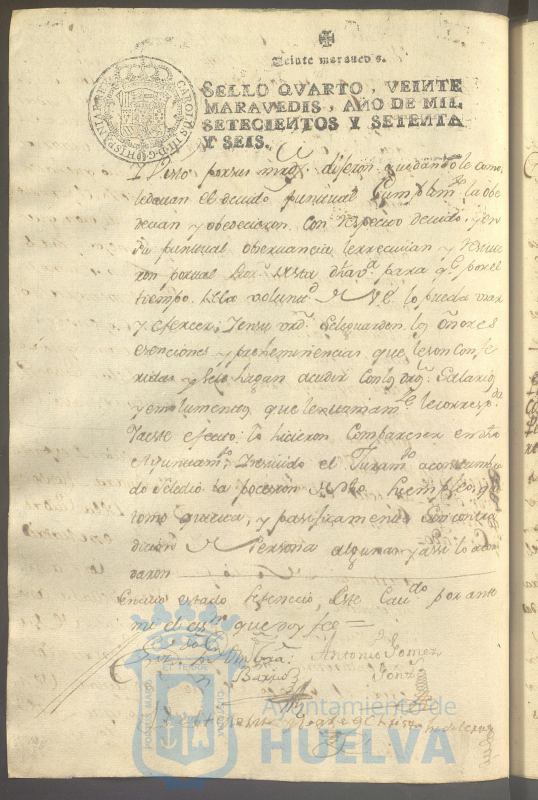 Veinte maravedis.
SELLO QVARTO, VEINTE
MARAVEDIS, AÑO DE MIL
SETECIENTOS Y SETENTA
Y SEIS.
CAROLVS III D G HISPANIAR REX
Y Visto por sus mrds dijeron quedandole como
le davan el devido puntual Cumplimto la obe
decian y obedecieron con respecto devido, y en
su puntual observancia le rrecivian y recivie
ron por tal de esta dha va para qe por el
tiempo de la voluntd de S. E. lo pueda usar
y ejercer, se le guarden los onores
esenciones y preheminencias que le son confe
ridas y se le hagan acudir con los Salarios
y emolumentos que lexitimamte le corresponda
Y a este efecto lo hicieron Comparecer en este
Ayuntamto y recivido el Juramdo acostumbra
do se le dio la posesion de dho empleo, q
tomo quieta, y pasificamente sin contra
dicion de Persona alguna y assi lo acor
daron
En cuio estado fenecio este Cavdo por ante
mi el essno que doy fee =
Antonio Gomez
Barrio
Ayuntamiento de
HUELVA
PORTUS MARIS